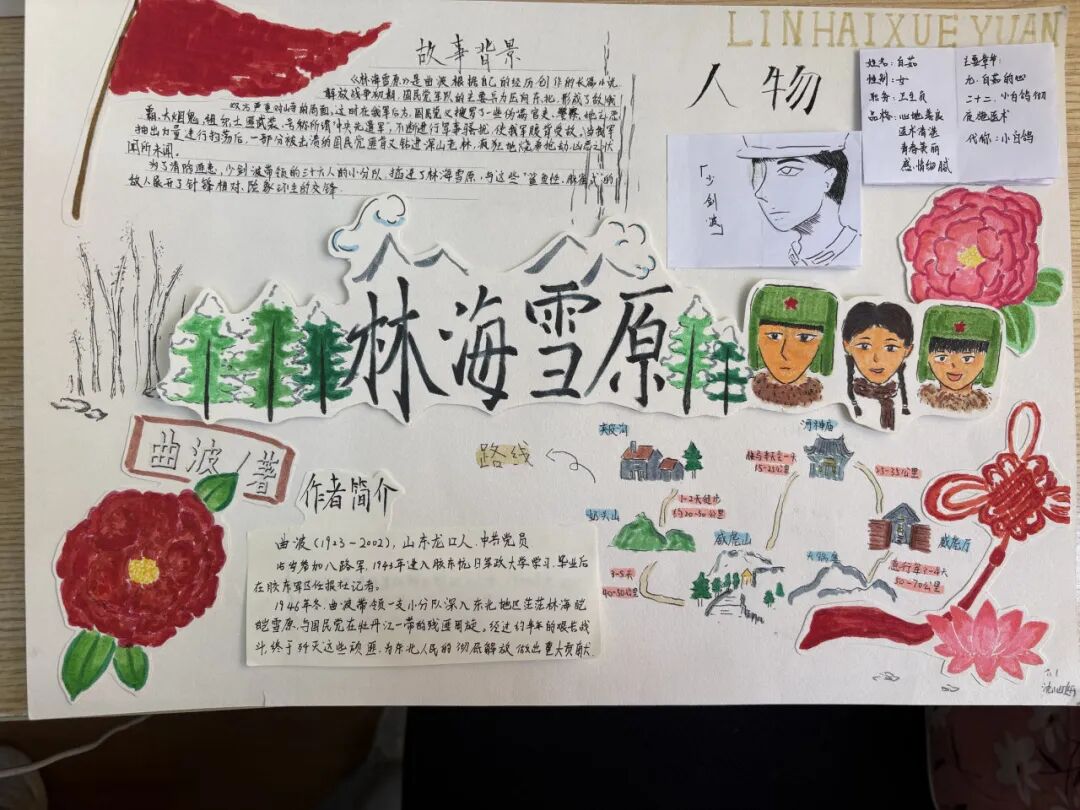 LINHAIXUE YUAN
故事背景
《林海雪原》是曲波根据自己的经历创作的长篇小说.
解放战争初期,国民党军队的主要兵力压向东北,形成了敌我
双方严重对峙的局面,这时在我军后方,国民党又搜罗了一些伪满官吏、警察、地主恶
霸、大烟鬼,组织土匪武装,号称所谓"中央先遣军",不断进行军事骚扰,使我军腹背受敌,当我军
抽出力量进行扫荡后,一部分被击溃的国民党匪首又钻进深山老林,疯狂地烧杀抢劫,凶恶之状
闻所未闻.
为了消除匪患,少剑波带领的三十六人的小分队,插进了林海雪原,与这些"
的
敌人展开了针锋相对、险象环生的交锋.
人物
「少剑波」
姓名:白茹
性别:女
职务:卫生员
品格:心地善良
医术精湛
青春美丽
感情细腻
主要章节:
九.白茹的心
二十二.小白鸽彻
夜施医术
代称:小白鸽
林海雪原
曲波/著
作者简介
曲波(1923-2002),山东龙口人.中共党员
15岁参加八路军.1943年进入胶东抗日军政大学学习.毕业后
在胶东军区任报社记者.
1946年冬.曲波带领一支小分队深入东北地区茫茫林海皑
皑雪原.与国民党在牡丹江一带的残匪周旋.经过约半年的艰苦战
斗,终于歼灭这些顽匪.为东北人民的彻底解放做出重大贡献
路线
夹皮沟
河神庙
奶头山
威虎山
威虎厅
1-2天徒步
约20-50公里
15-25公里
25-35公里
3-5天
40-50公里
急行军3-4天
50-70公里